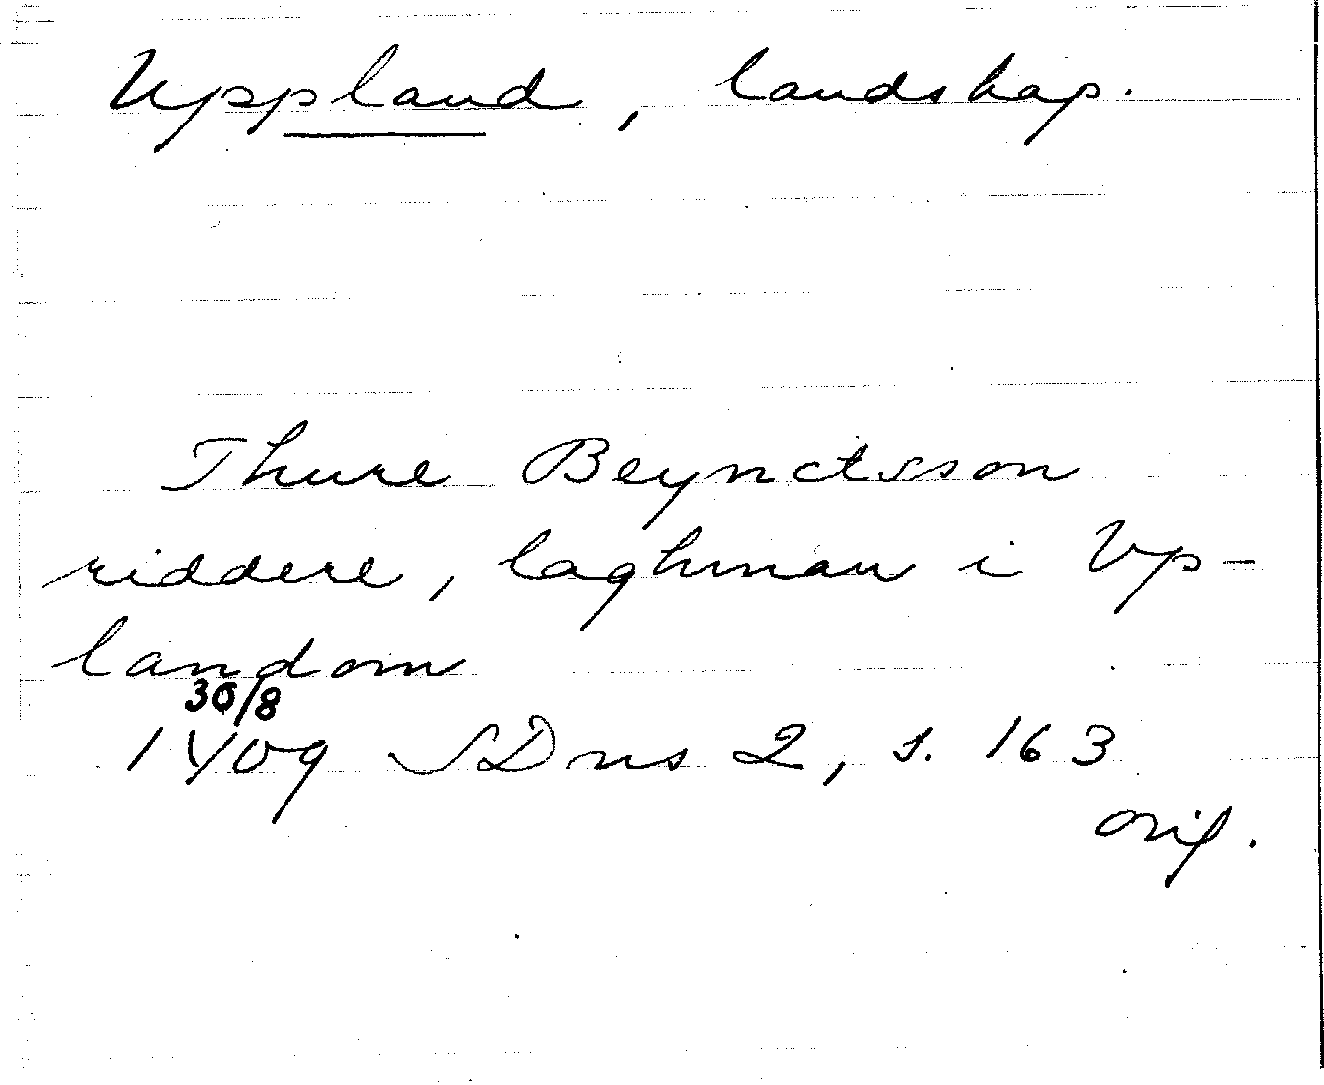 Uppland, landskap.
Thure Beynctsson
riddere, laghman i Vp-
landom
30/8
1409 SDns 2, s. 163
orig.